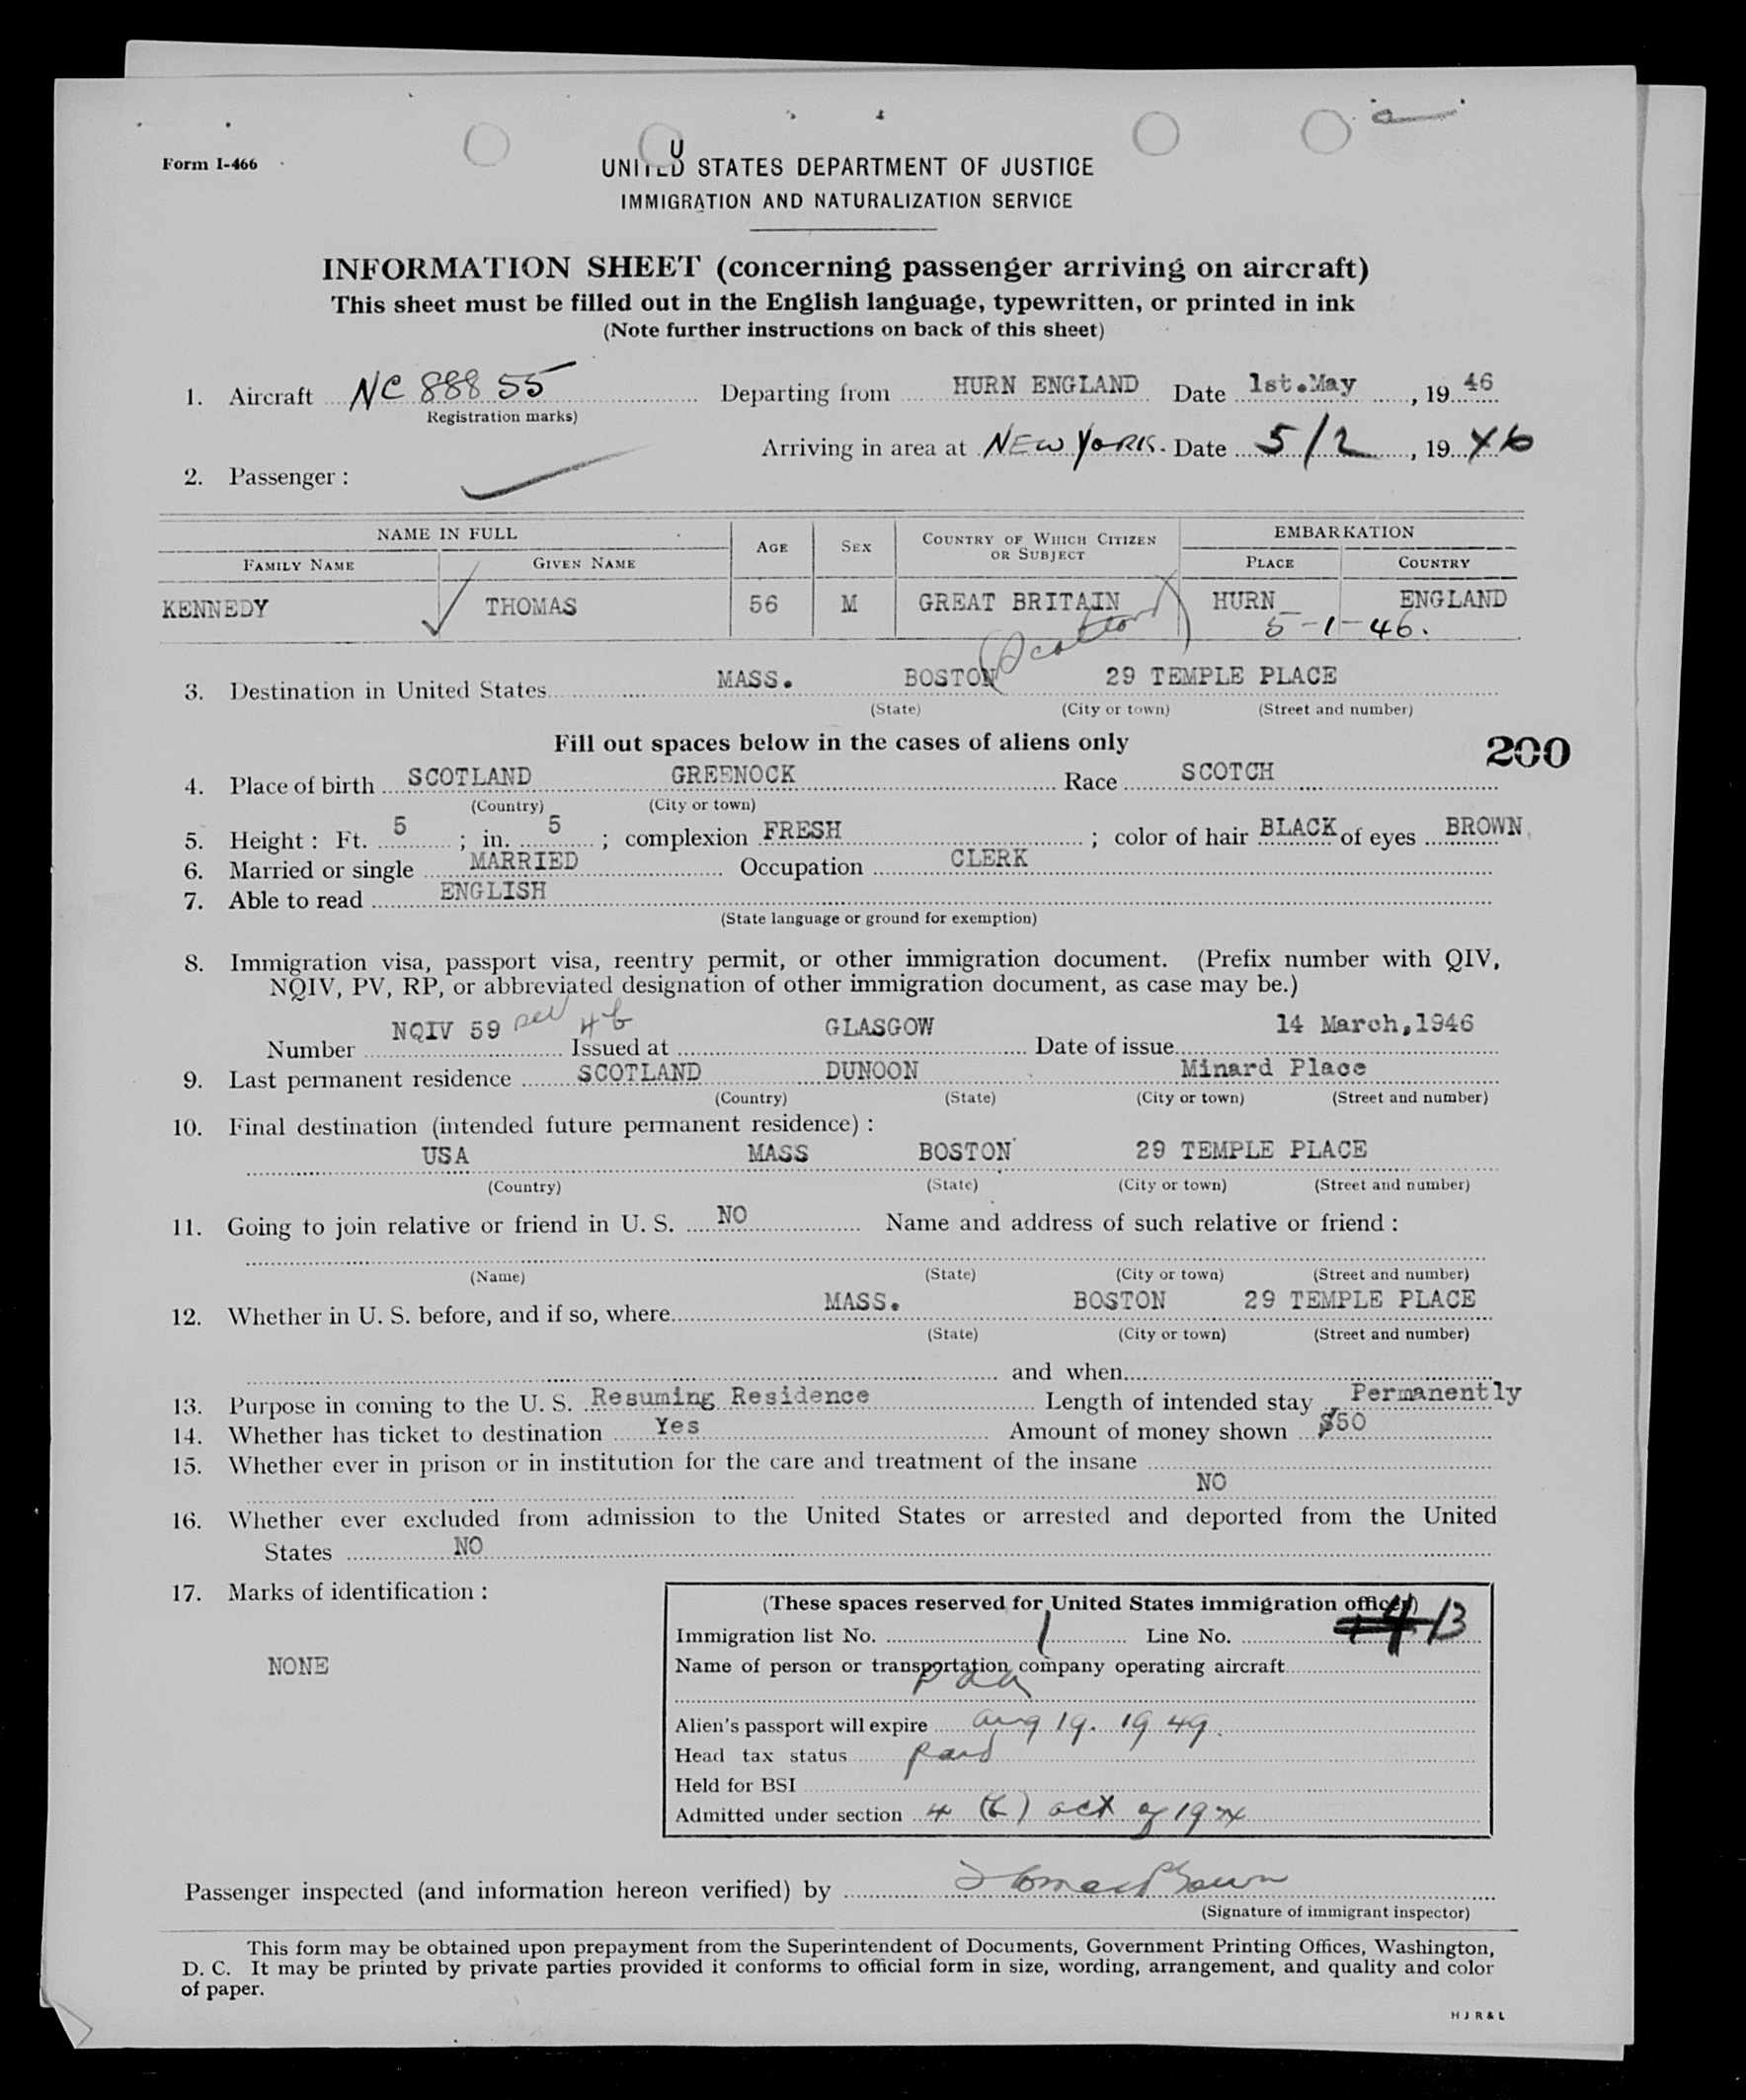 Form I-466
U
UNITED STATES DEPARTMENT OF JUSTICE
IMMIGRATION AND NATURALIZATION SERVICE
INFORMATION SHEET (concerning passenger arriving on aircraft)
This sheet must be filled out in the English language, typewritten, or printed in ink
(Note further instructions on back of this sheet)
1. Aircraft NC 88855 Departing from HURN ENGLAND Date 1st.May, 1946
(Registration marks)
Arriving in area at NEW YORK. Date 5/2, 1946
2. Passenger:
NAME IN FULL AGE SEX COUNTRY OF WHICH CITIZEN OR SUBJECT EMBARKATION
FAMILY NAME GIVEN NAME PLACE COUNTRY
KENNEDY THOMAS 56 M GREAT BRITAIN HURN ENGLAND
(Scotland) 5-1-46.
3. Destination in United States MASS. BOSTON 29 TEMPLE PLACE
(State) (City or town) (Street and number)
Fill out spaces below in the cases of aliens only
200
4. Place of birth SCOTLAND GREENOCK Race SCOTCH
(Country) (City or town)
5. Height: Ft. 5; in. 5; complexion FRESH; color of hair BLACK of eyes BROWN
6. Married or single MARRIED Occupation CLERK
7. Able to read ENGLISH
(State language or ground for exemption)
8. Immigration visa, passport visa, reentry permit, or other immigration document. (Prefix number with QIV,
NQIV, PV, RP, or abbreviated designation of other immigration document, as case may be.)
Number NQIV 59 4b Issued at GLASGOW Date of issue 14 March,1946
9. Last permanent residence SCOTLAND DUNOON Minard Place
(Country) (State) (City or town) (Street and number)
10. Final destination (intended future permanent residence):
USA MASS BOSTON 29 TEMPLE PLACE
(Country) (State) (City or town) (Street and number)
11. Going to join relative or friend in U. S. NO Name and address of such relative or friend:
(Name) (State) (City or town) (Street and number)
12. Whether in U. S. before, and if so, where MASS. BOSTON 29 TEMPLE PLACE
(State) (City or town) (Street and number)
and when
13. Purpose in coming to the U. S. Resuming Residence Length of intended stay Permanently
14. Whether has ticket to destination Yes Amount of money shown $50
15. Whether ever in prison or in institution for the care and treatment of the insane
NO
16. Whether ever excluded from admission to the United States or arrested and deported from the United
States NO
17. Marks of identification:
NONE
(These spaces reserved for United States immigration officer)
Immigration list No. 1 Line No. 13
Name of person or transportation company operating aircraft
paa
Alien's passport will expire Aug 19. 1949.
Head tax status paid
Held for BSI
Admitted under section 4 (b) act of 1924
Passenger inspected (and information hereon verified) by
(Signature of immigrant inspector)
This form may be obtained upon prepayment from the Superintendent of Documents, Government Printing Offices, Washington,
D. C. It may be printed by private parties provided it conforms to official form in size, wording, arrangement, and quality and color
of paper.
H J R & L